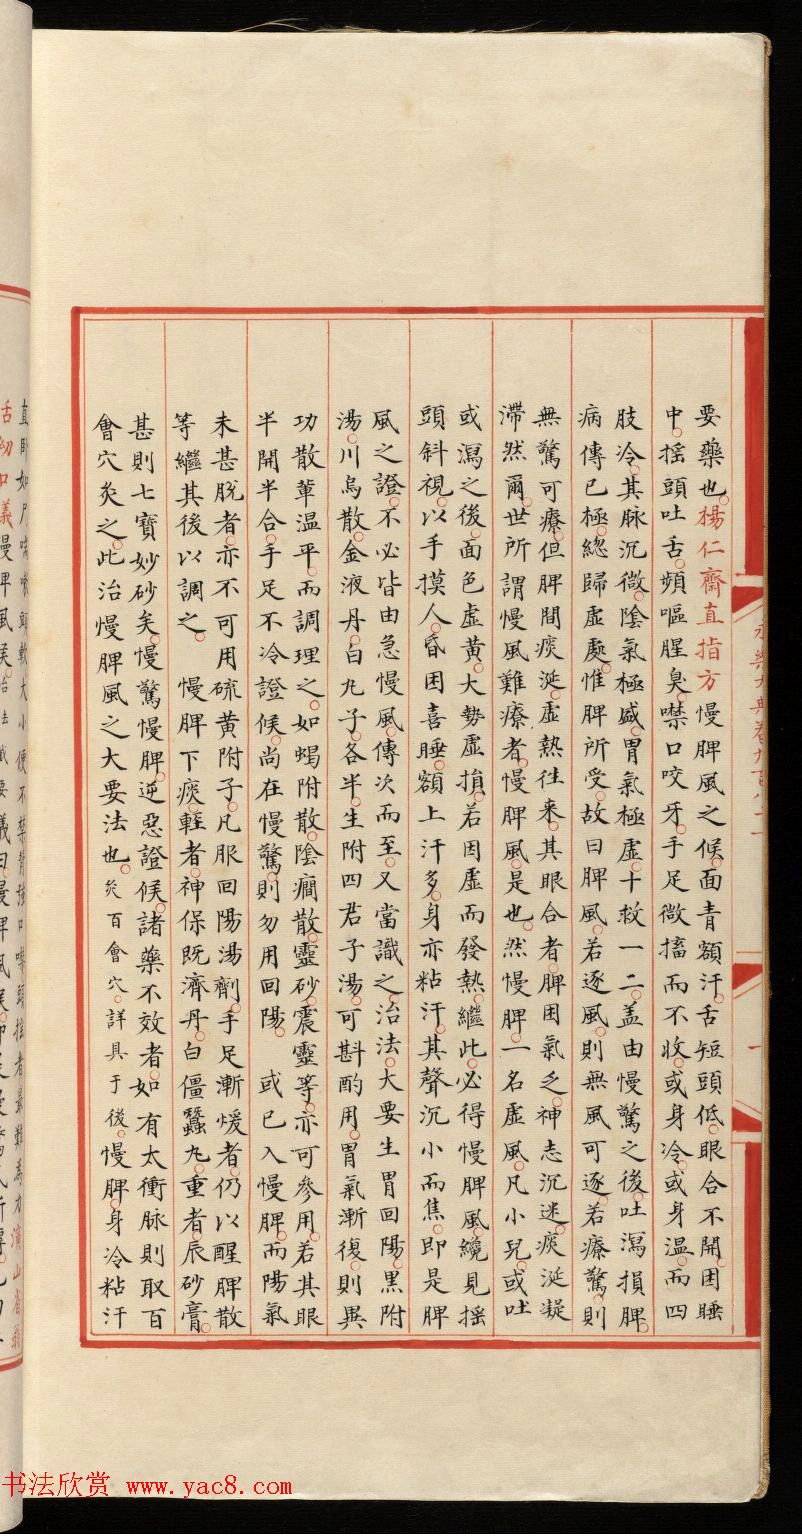 要藥也楊仁齋直指方慢脾風之候面青額汗舌短頭低眼合不開困睡
中搖頭吐舌頻嘔腥臭噤口咬牙手足微搐而不收或身冷或身溫而四
肢冷其脉沉微陰氣極盛胃氣極虛十救一二盖由慢驚之後吐瀉損脾
病傳已極緫歸虛處惟脾所受故曰脾風若逐風則無風可逐若療驚則
無驚可療但脾間痰涎虛熱往來其眼合者脾困氣乏神志沉迷痰涎凝
滯然爾世所謂慢風難療者慢脾風是也然慢脾一名虛風凡小兒或吐
或瀉之後面色虛黃大勢虛損若因虛而發熱繼此必得慢脾風纔見搖
頭斜視以手摸人昏困喜睡額上汗多身亦粘汗其聲沉小而焦即是脾
風之證不必皆由急慢風傳次而至又當識之治法大要生胃回陽黑附
湯川烏散金液丹白丸子各半生附四君子湯可斟酌用胃氣漸復則異
功散軰温平而調理之如蝎附散陰癎散靈砂震靈等亦可參用若其眼
半開半合手足不冷證候尚在慢驚則勿用回陽 或已入慢脾而陽氣
未甚脫者亦不可用硫黃附子凡服回陽湯劑手足漸煖者仍以醒脾散
等繼其後以調之 慢脾下痰輕者神保既濟丹白僵蠶丸重者辰砂膏
甚則七寶妙砂矣慢驚慢脾逆惡證候諸藥不效者如有太衝脉則取百
會穴灸之此治慢脾風之大要法也灸百會穴詳具于後慢脾身冷粘汗
永樂大典卷九百八十一
一
书法欣赏 www.yac8.com